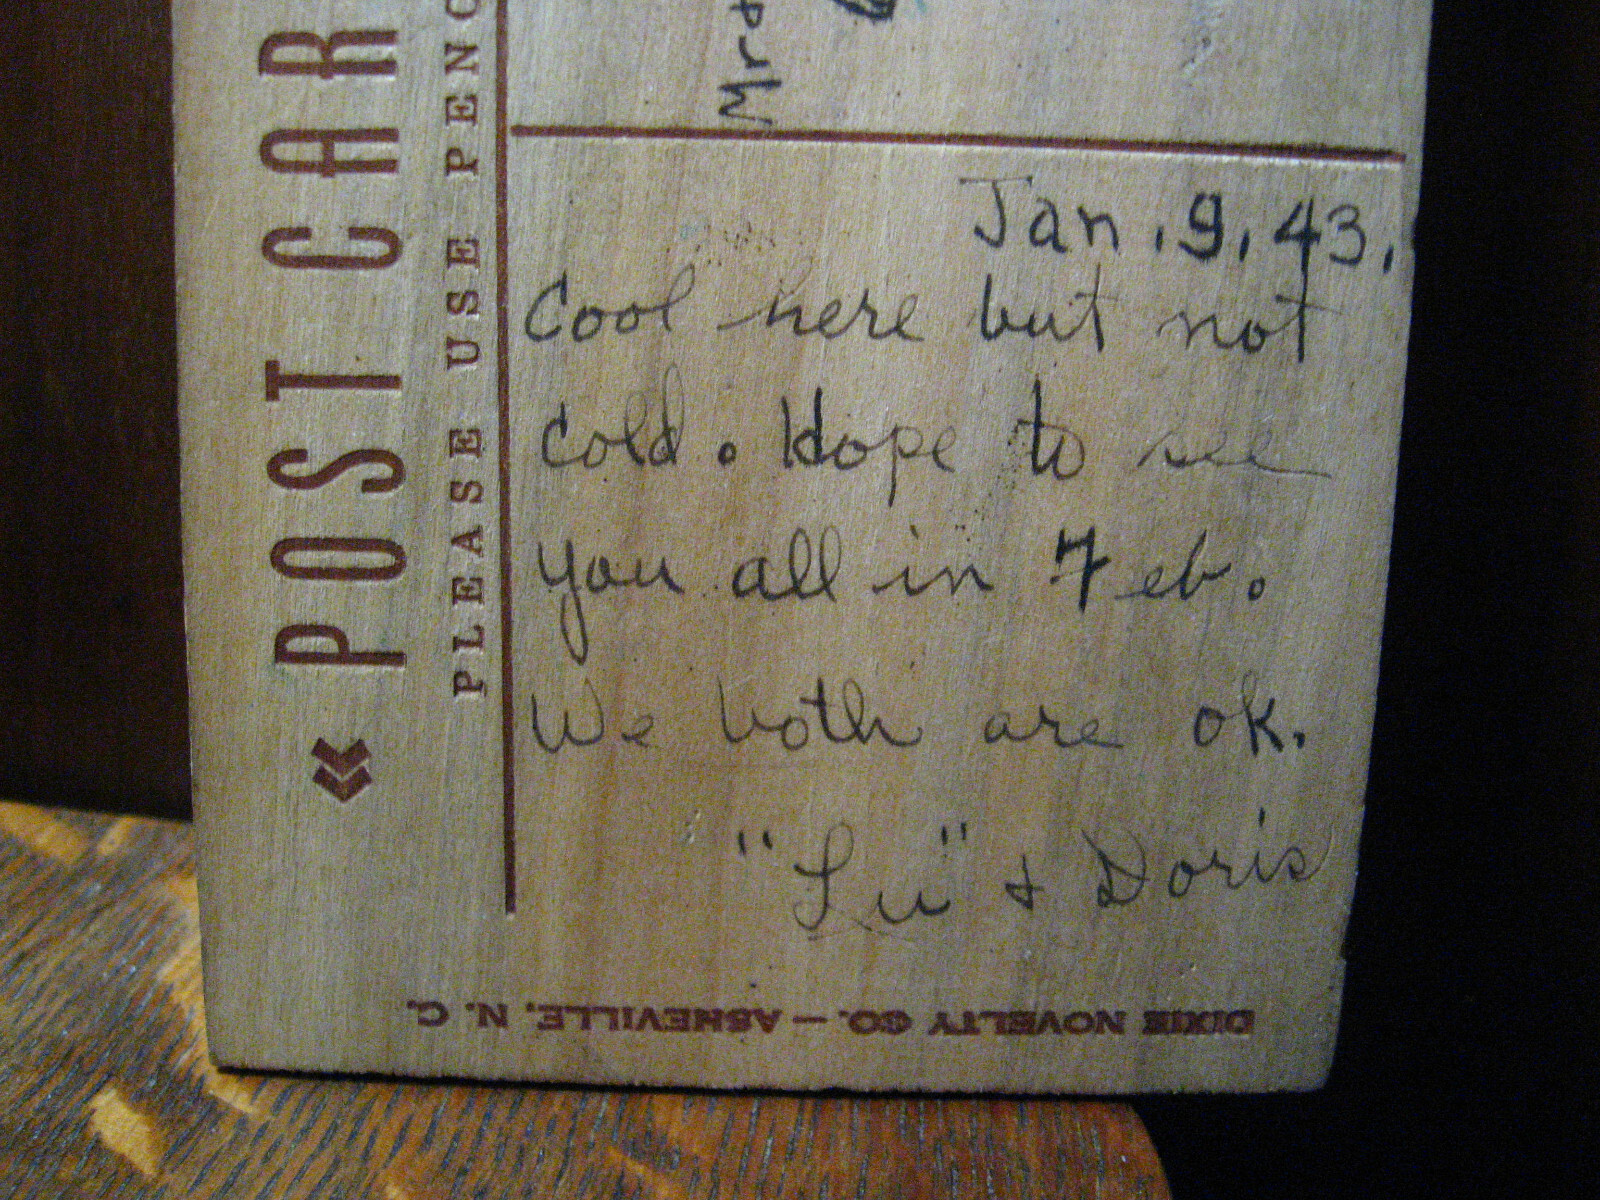 POST CAR
PLEASE USE PENC
Jan. 9. 43.
Cool here but not
cold. Hope to see
you all in Feb.
We both are ok.
"Lu" & Doris
DIXIE NOVELTY CO. — ASHEVILLE, N. C.